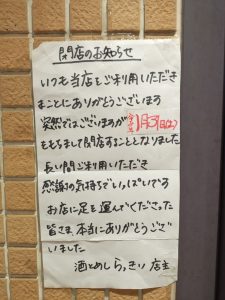 閉店のお知らせ
いつも当店をご利用いただき
まことにありがとうございます
突然ではございますが 1月31日(土)
をもちまして閉店することとなりました
長い間ご利用いただき
感謝の気持ちでいっぱいです
お店に足を運んでくださった
皆さま、本当にありがとうござ
いました
酒とめし らっきぃ 店主